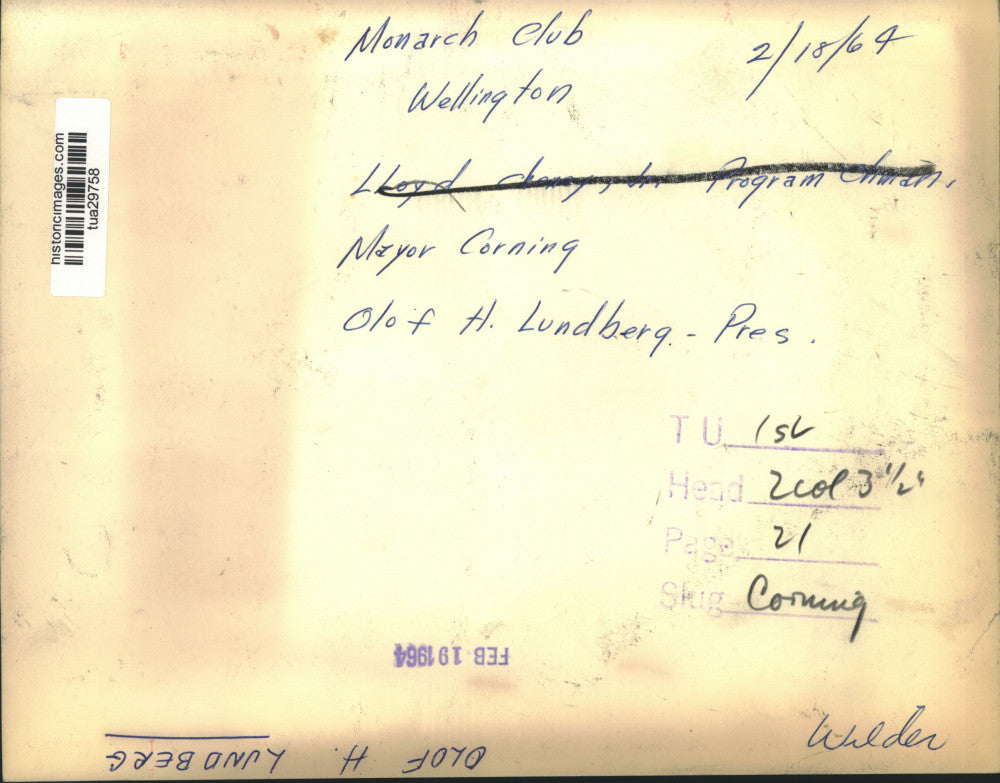 Monarch Club 2/18/64
Wellington
Lloyd Program Chman.
Mayor Corning
Olof H. Lundberg - Pres.
historicimages.com
tua29758
TU 1st
Head 2col 3 1/2"
Page 21
Slug Corning
FEB 19 1964
Wilder
OLOF H. LUNDBERG